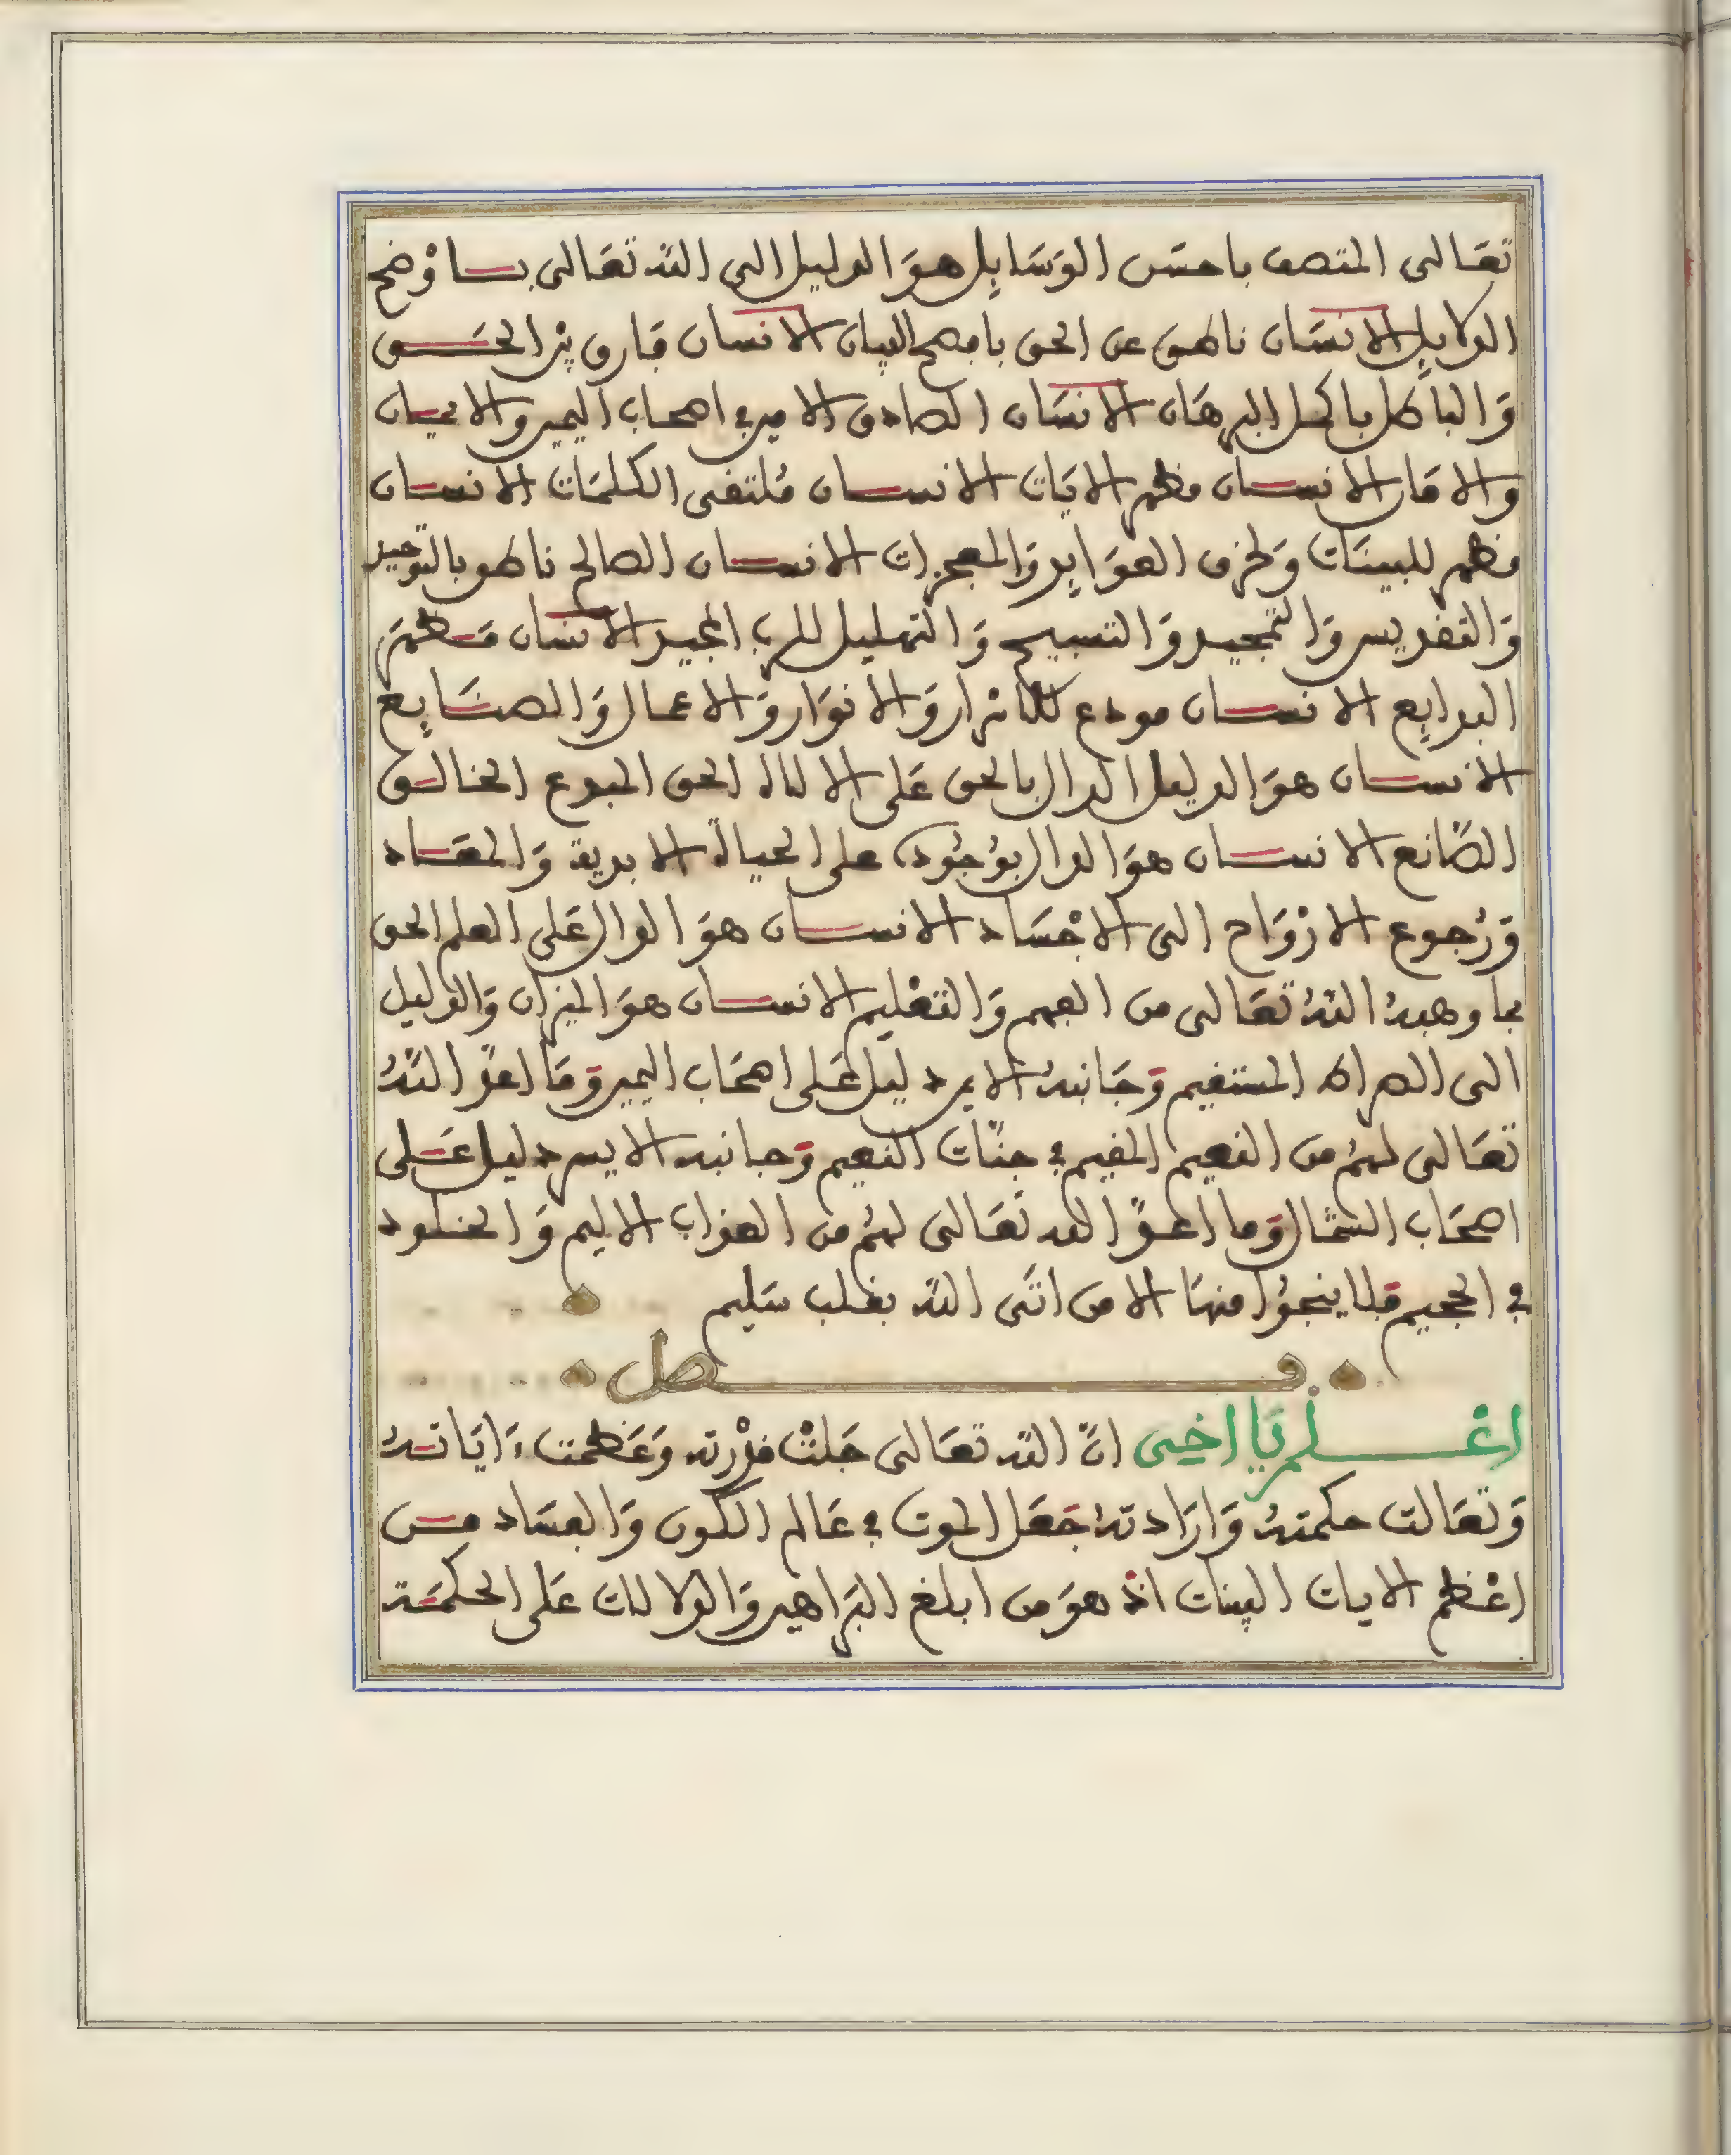 تعَالى المتصف باحسَن الوَسَايِل هوَ الدليل الى الله تعَالى بـــاوْضح
الدلايِل الانسَان ناطق عن الحق بافصح البيان الانسان فارق بيْن الحَــق
وَالباطل باكمل البرهَان الانسَان الصادق الامين في اصحاب اليمين والايمان
والامَان الانسان مظهر الايَات الانسان مُلتقى الكلمَات الانسان
مظهر للبينَات وَلخرق العوَايِد وَالمعجزات الانسان الصالح ناطق بالتوَحيد
وَالتقديس وَالتمجيد وَالتسبيح وَالتهليل للرب المجيد الانسَان مَظهَر
البدايِع الانسان مودع للاسْرار وَالانوَار وَالاعمال وَالصنَايِع
الانسان هوَ الدليل الدال بالحق عَلى الالاه الحق المبدع الخالق
الصَّانع الانسان هوَ الدال بوُجُوده على الحياة الابدية وَالمعَاد
وَرُجوع الارْوَاح الى الاجْسَاد الانسان هوَ الدال عَلى العلم الحق
بما وهبهُ اللهُ تعَالى من الفهم وَالتعْليم الانسان هوَ الميزان وَالدليل
الى الصراط المستقيم وَجَانبهُ الايمن دليل عَلى اصحَاب اليمين وَمَا اعدَّ اللهُ
تعَالى لهُم من النعيم المقيم في جنَّات النعيم وَجانبه الايسر دليل عَلى
اصحَاب الشمَال وَما اعدَّ الله تعَالى لهُم من العذاب الاليم وَالخلود
في الجحيم فلا ينجوُا منهَا الا من اتَى اللهَ بقلب سَليم
فصل
اعْلم يَا اخِي انَّ الله تعَالى جَلتْ قدْرته وَعَظمت ءَايَاتهُ
وَتعَالت حكمتهُ وَارَادتهُ جَعَل الموت في عَالم الكون وَالفسَاد مـن
اعْظم الايات البينات اذْ هوَ من ابلغ البَراهين وَالدلالات عَلى الحكمَة